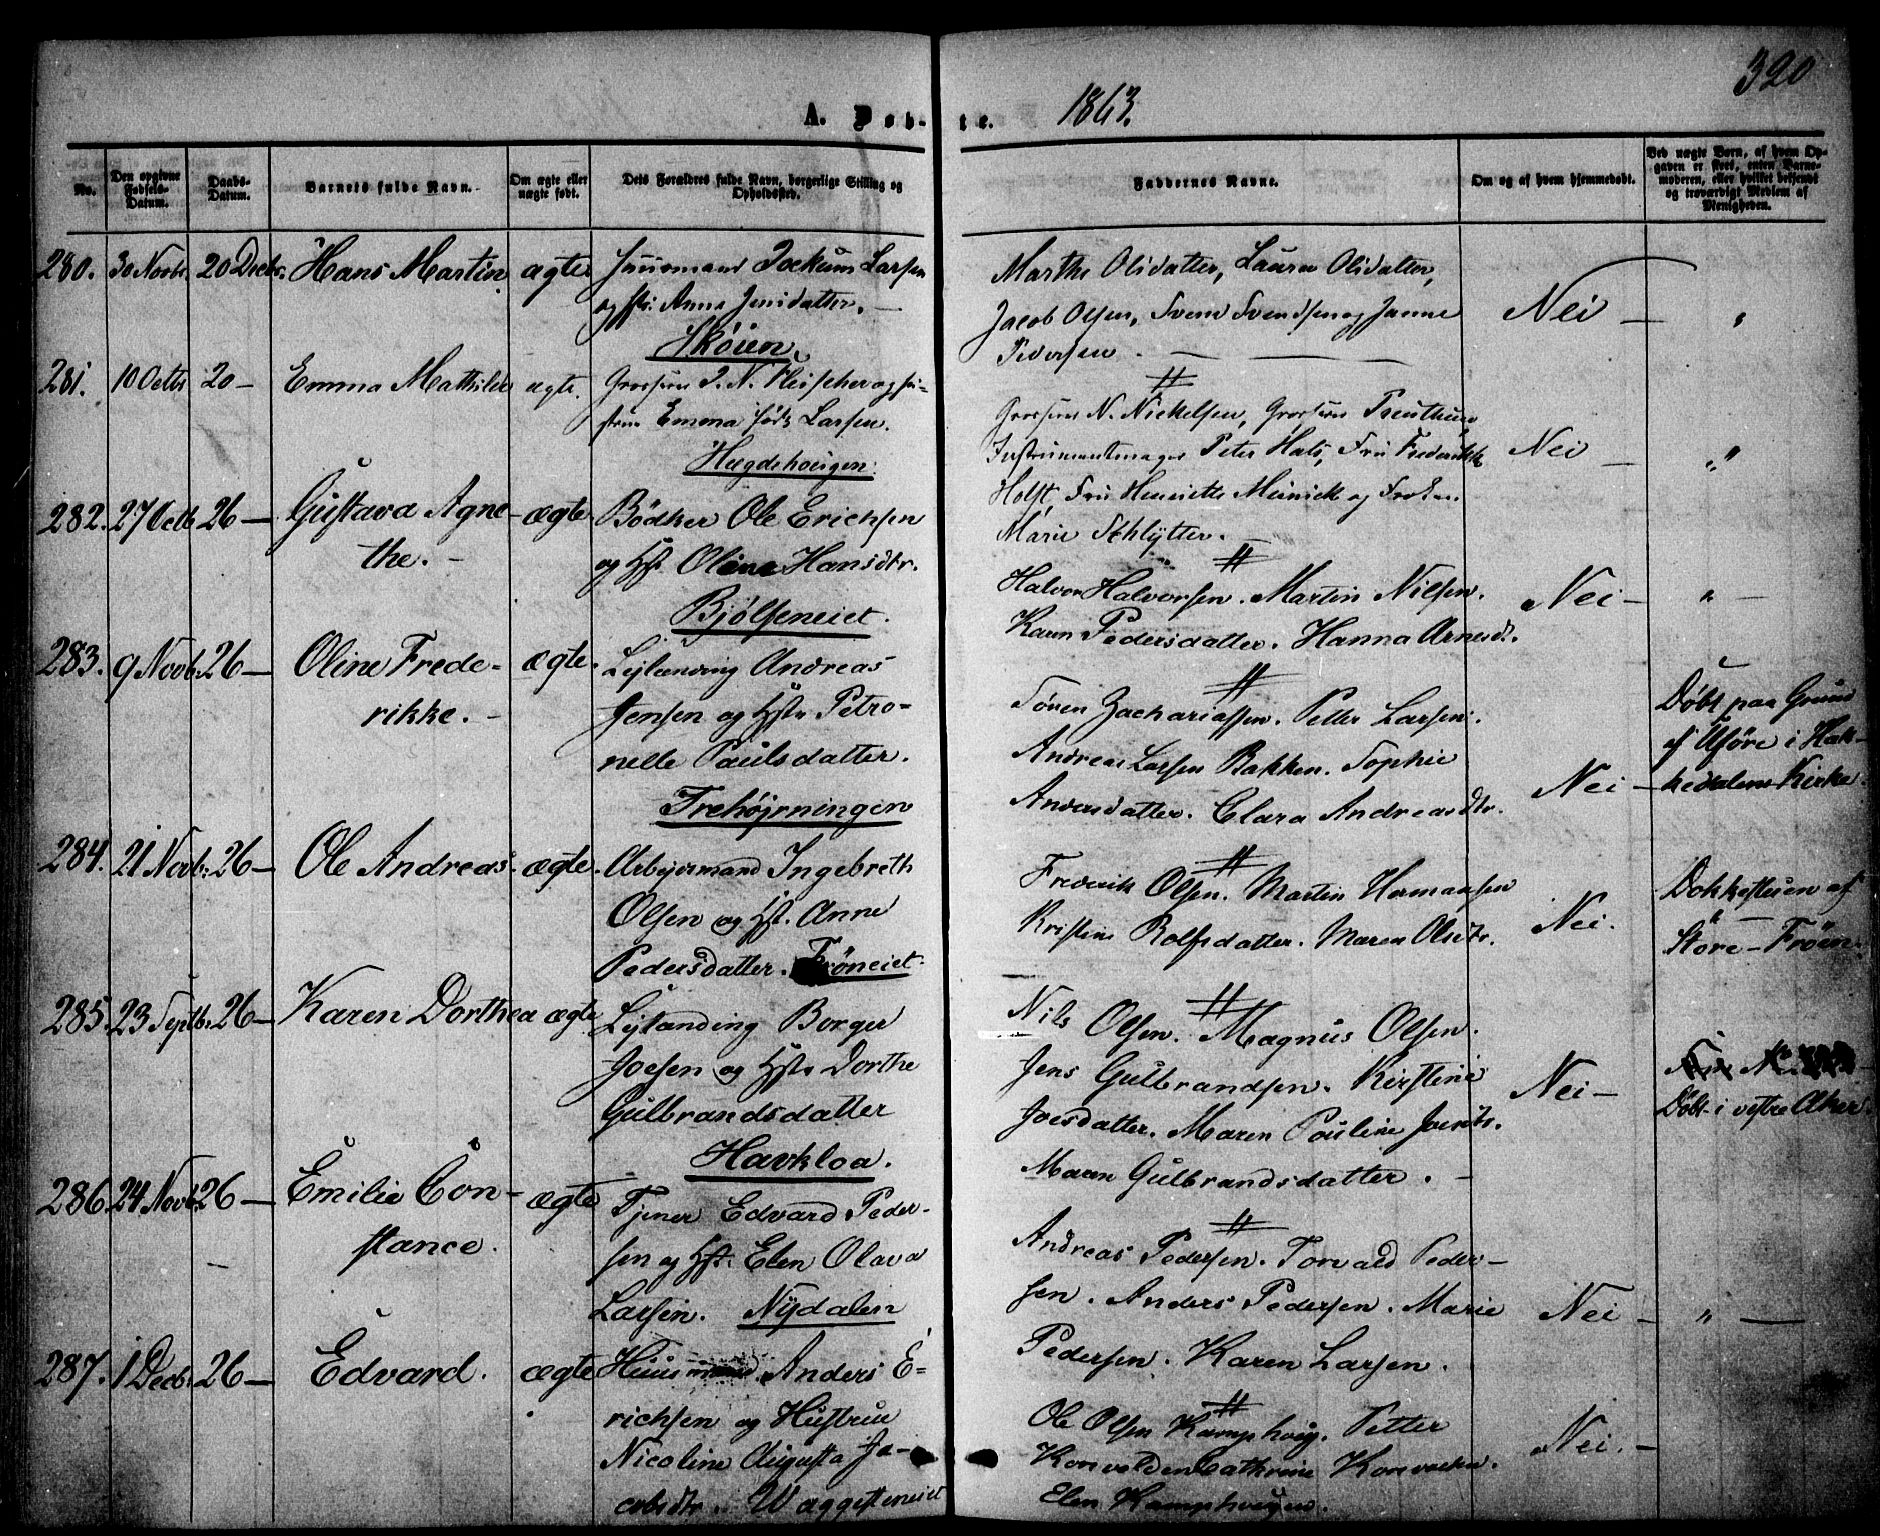 320
A. Døb-
te. 1863.
No.
Den opgivne
Fødsels-
Datum.
Daabs-
Datum.
Barnets fulde Navn.
Om ægte eller
uægte født.
Dets Forældres fulde Navn, borgerlige Stilling og
Opholdssted.
Faddernes Navne.
Om og af hvem hjemmedøbt.
Ved uægte Børn, af hvem Op-
gaven er skeet, enten Barne-
moderen, eller hvilket bekjendt
og troværdigt Medlem af
Menigheden.
280. 30 Novbr. 20 Decbr. Hans Martin ægte
Huusmand Jockum Larsen
og Hst. Anne Jensdatter. —
Skøien
Marthe Olsdatter, Laura Olsdatter,
Jacob Olsen, Svend Svendsen og Janne
Pedersen. —
Nei — "
281. 10 Octbr 20 — Emma Mathilde ægte.
Grosserer J. N. Fleischer og Hu-
stru Emma født Larsen.
Hægdehougen
Grosserer N. Nickelsen, Grosserer
Instrumentmager Peter Hals, Fru Frederikke
Holst, Fru Henriette Meinich og Frøken
Marie Schlytter.
Nei — "
282. 27 Octb 26 — Gustava Agne-
the. —
ægte
Bødker Ole Erichsen
og Hst Oline Hansdtr.
Bjølseneiet.
Halvor Halvorsen. Martin Nilsen.
Karen Pedersdatter. Hanna Arnesdt.
Nei — " —
283. 9 Novb. 26 — Oline Frede-
rikke. —
ægte.
Lejlænding Andreas
Jensen og Hstr Petro-
nelle Paulsdatter.
Trehøjrningen
Søren Zachariassen. Petter Larsen.
Andreas Larsen Bakken. Sophie
Andersdatter. Clara Andreasdtr.
Nei —
Døbt paa Grund
af Uføre i Hak-
kedalens Kirke.
284. 21 Novb. 26 — Ole Andreas. ægte.
Arbejdsmand Ingebreth
Olsen og Hst. Anne
Pedersdatter. Frøneiet.
Frederik Olsen. Martin Hermansen
Kristine Rolfsdatter. Maren Olsdtr.
Nei.
Dokkestuen af
Store-Frøen.
285. 23 Septbr. 26 — Karen Dorthea ægte
Lejlænding Borger
Joesen og Hstr Dorthe
Gulbrandsdatter
Havkloa.
Nils Olsen. Magnus Olsen.
Jens Gulbrandsen. Kirstine
Joesdatter. Maren Pauline Joesdtr.
Maren Gulbrandsdatter. —
Nei —
Døbt i vestre Aker.
286. 24 Novb. 26 — Emilie Con-
stance.
ægte
Tjener Edvard Peder-
sen og Hst. Elen Olava
Larsen. Nydalen
Andreas Pedersen. Torvald Peder-
sen. Anders Pedersen. Marie
Pedersen. Karen Larsen.
Nei — " —
287. 1 Decb. 26 — Edvard. ægte
Huusmand. Anders E-
richsen og Hustrue
Nicoline Augusta Ja-
cobsdtr. Waggesteneiet
Ole Olsen Kamphoug. Petter
Cathrine
Elen Kamphougen.
Nei. —